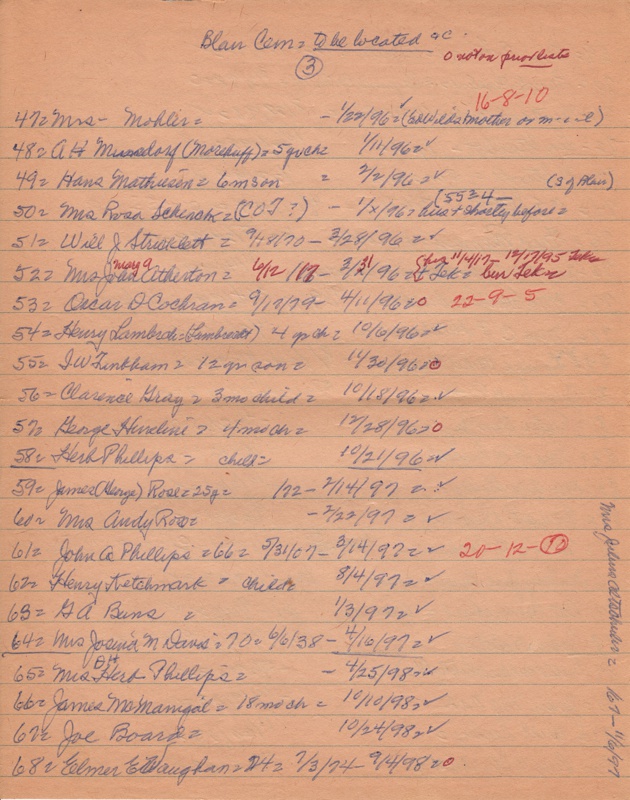 Blair Cem = to be located ac
③ o not on prior lists
16-8-10
47= Mrs - Mohler = - 1/22/96 =✓ (Ed Wilds mother or m-i-l)
48= A H Mussdorf (Morehuff) = 5 yr ch = 1/11/96=✓
49= Hans Mathiesen = 6 m son = 2/2/96=✓ (S of Blair)
50= Mrs Rosa Schenck = (COT?) - 1/x/96 = hus + shortly before =
(55=4-
51= Will J Stricklett = 9/18/70 - 3/28/96=✓
52= Mrs Mary A Atherton = 6/12/17 - 3/31/96 = + Tek = (hus 11/4/17 - 12/17/95 Tek= bur Tek=
53= Oscar D Cochran = 9/17/79 - 4/11/96=o 22-9-5
54= Henry Lambrch = (Lambrecht) 4 yr ch = 10/6/96=✓
55= I W Finkham = 12 yr son = 11/30/96=o
56= Clarence Gray = 3 mo child = 10/18/96=✓
57= George Hineline = 4 mo ch = 12/28/96=o
58= Herb Phillips = child = 10/21/96=✓
59= James (George) Rose = 25y = /72 - 2/14/97=✓
60= Mrs Andy Rose = - 2/22/97=✓
61= John Q Phillips = 66 = 5/31/07 - 3/14/97=✓ 20-12-10
62= Henry Ketchmark = child = 8/4/97=✓
63= G A Buns = 1/3/97=✓
64= Mrs Josina M Davis = 70 = 6/6/38 - 4/16/97=✓
65= Mrs DH Herb Phillips = - 4/25/98=✓
66= James McManigal = 18 mo ch = 10/10/98=✓
67= Joe Board = 10/24/98=✓
68= Elmer E Vaughan = 24 = 7/3/74 - 9/4/98=o
Mrs Julius = 67 - 11/6/97